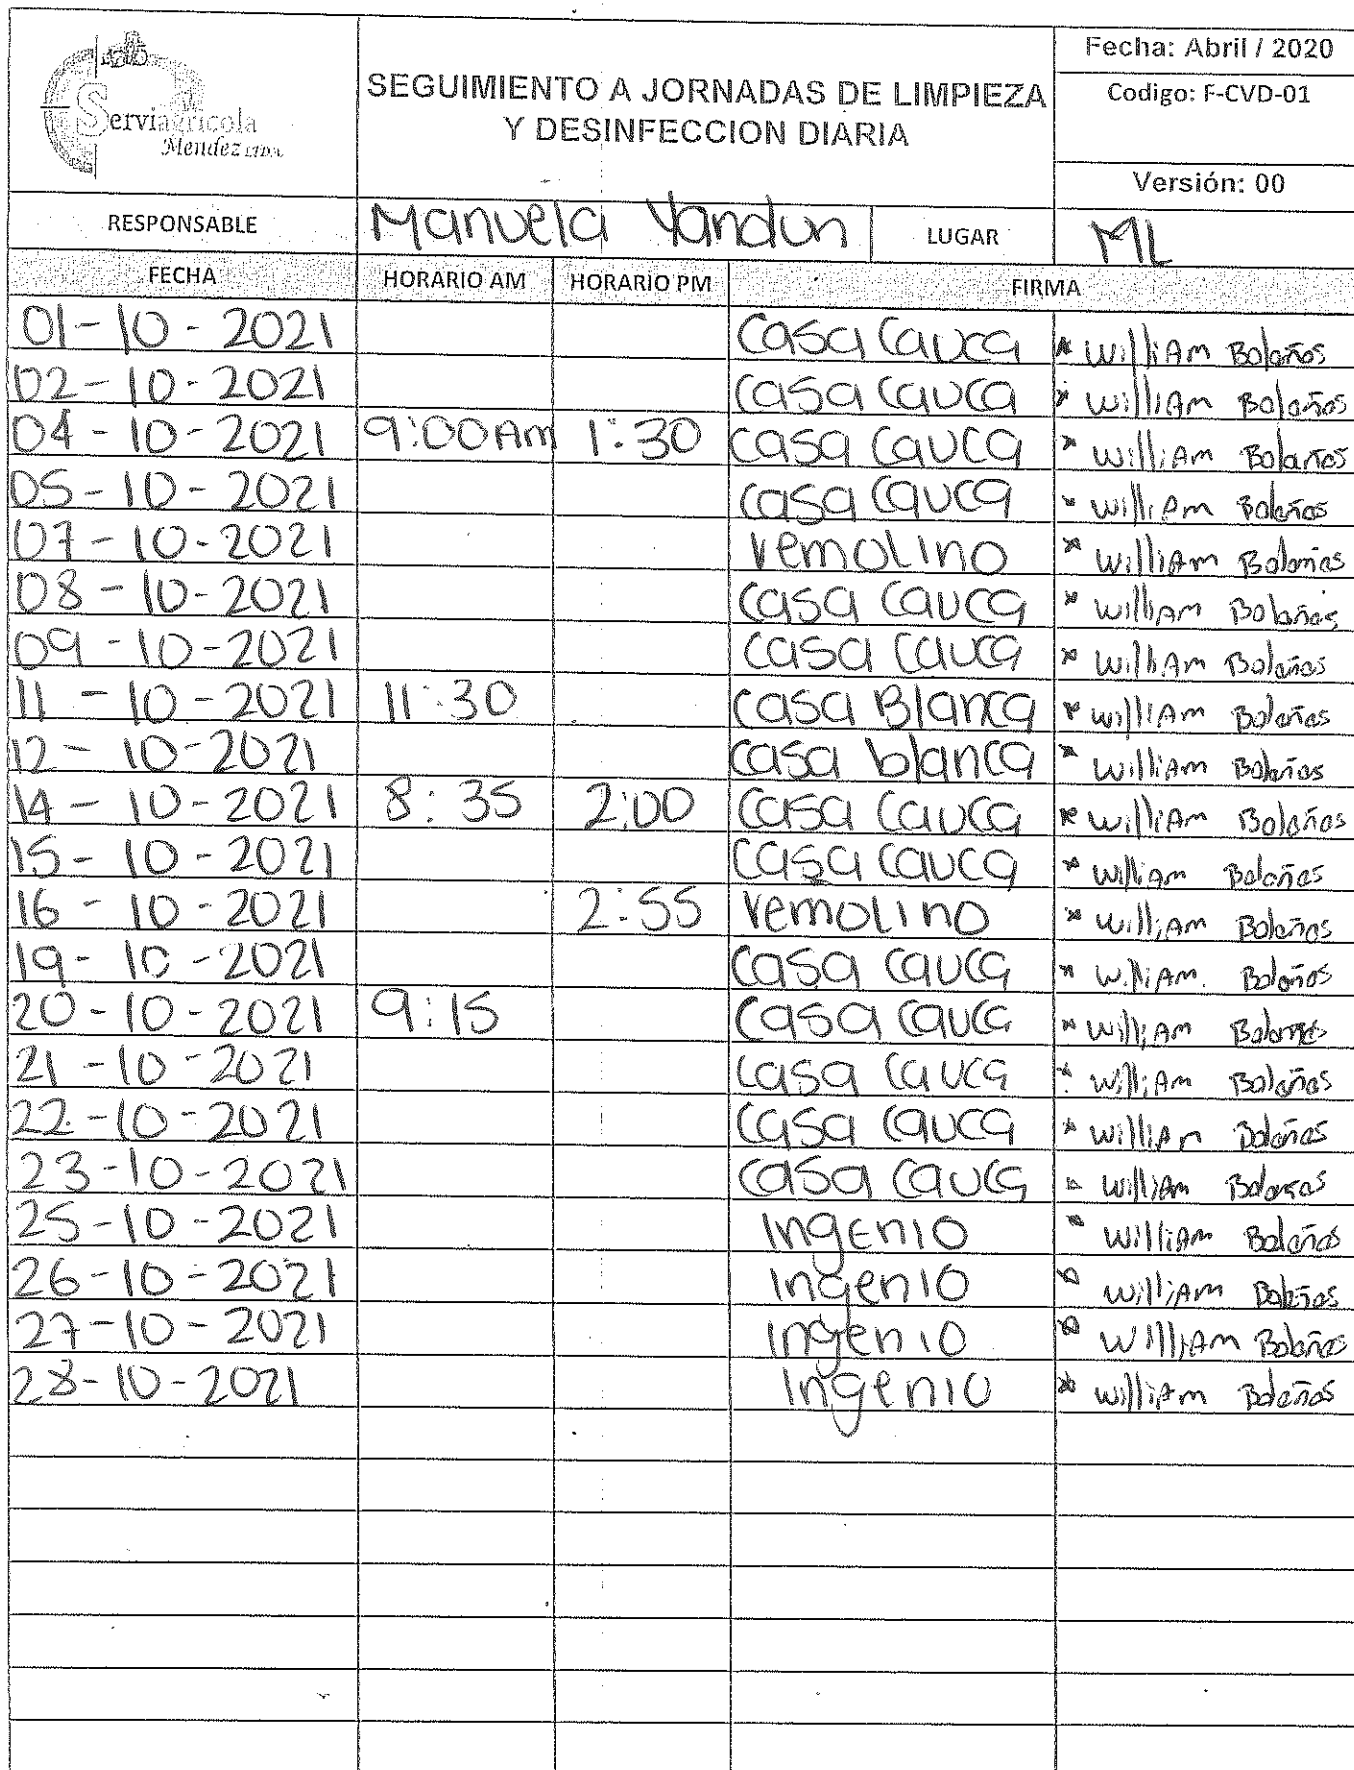 Serviagricola
Mendez LTDA.
SEGUIMIENTO A JORNADAS DE LIMPIEZA
Y DESINFECCION DIARIA
Fecha: Abril / 2020
Codigo: F-CVD-01
Versión: 00
RESPONSABLE Manuela Yandun LUGAR ML
FECHA HORARIO AM HORARIO PM FIRMA
01-10-2021 casa cauca * WilliAm Bolaños
02-10-2021 casa cauca * WilliAm Bolaños
04-10-2021 9:00 Am 1:30 casa cauca * WilliAm Bolaños
05-10-2021 casa cauca * WilliAm Bolaños
07-10-2021 remolino * WilliAm Bolaños
08-10-2021 casa cauca * WilliAm Bolaños
09-10-2021 casa cauca * WilliAm Bolaños
11-10-2021 11:30 casa Blanca * WilliAm Bolaños
12-10-2021 casa blanca * WilliAm Bolaños
14-10-2021 8:35 2:00 casa cauca * WilliAm Bolaños
15-10-2021 casa cauca * WilliAm Bolaños
16-10-2021 2:55 remolino * WilliAm Bolaños
19-10-2021 casa cauca * WilliAm Bolaños
20-10-2021 9:15 casa cauca * WilliAm Bolaños
21-10-2021 casa cauca * WilliAm Bolaños
22-10-2021 casa cauca * WilliAm Bolaños
23-10-2021 casa cauca * WilliAm Bolaños
25-10-2021 Ingenio * WilliAm Bolaños
26-10-2021 Ingenio * WilliAm Bolaños
27-10-2021 Ingenio * WilliAm Bolaños
28-10-2021 Ingenio * WilliAm Bolaños